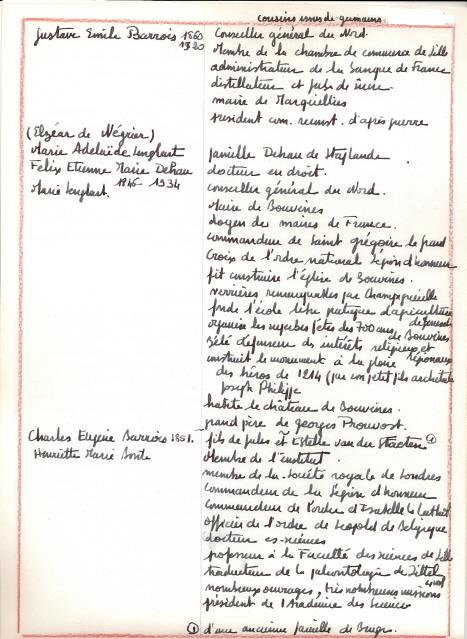 cousins issus de germains.
Gustave Emile Barrois 1860
1920
Conseiller général du Nord.
Membre de la chambre de commerce de Lille
administrateur de la banque de France
distillateur et fab. de sucre.
maire de Marquillies
président com. reconst. d'après guerre
(Elzéar de Négrier)
Marie Adelaïde Lenglart
Felix Etienne Marie Dehau
1846 1934
Marie Lenglart.
famille Dehau de Staplande
docteur en droit.
conseiller général du Nord.
Maire de Bouvines
doyen des maires de France.
commandeur de Saint grégoire le grand
Croix de l'ordre national Légion d'honneur
fit construire l'église de Bouvines.
verrières remarquables par Champigneulle
fonde l'école libre pratique d'agriculture
de Genech
organise les superbes fêtes des 700 ans de Bouvines
Zélé défenseur des intérêts religieux et
régionaux
construit le monument à la gloire
des héros de 1214 (par son petit fils architecte
Joseph Philippe
habite le château de Bouvines.
grand père de georges Prouvost.
Charles Eugène Barrois 1851.
Henriette Marie
fils de Jules et Estelle van der Straeten ①
Membre de l'institut.
membre de la Société royale de Londres
commandeur de la Légion d'honneur
commandeur de l'ordre d'Isabelle la Cathol
officier de l'ordre de Leopold de Belgique
docteur es-sciences
professeur à la Faculté des sciences de Lille
traducteur de la paleontologie de Zittel
nombreux ouvrages, très nombreuses missions
président de l'Academie des Sciences
① d'une ancienne famille de Bruges.